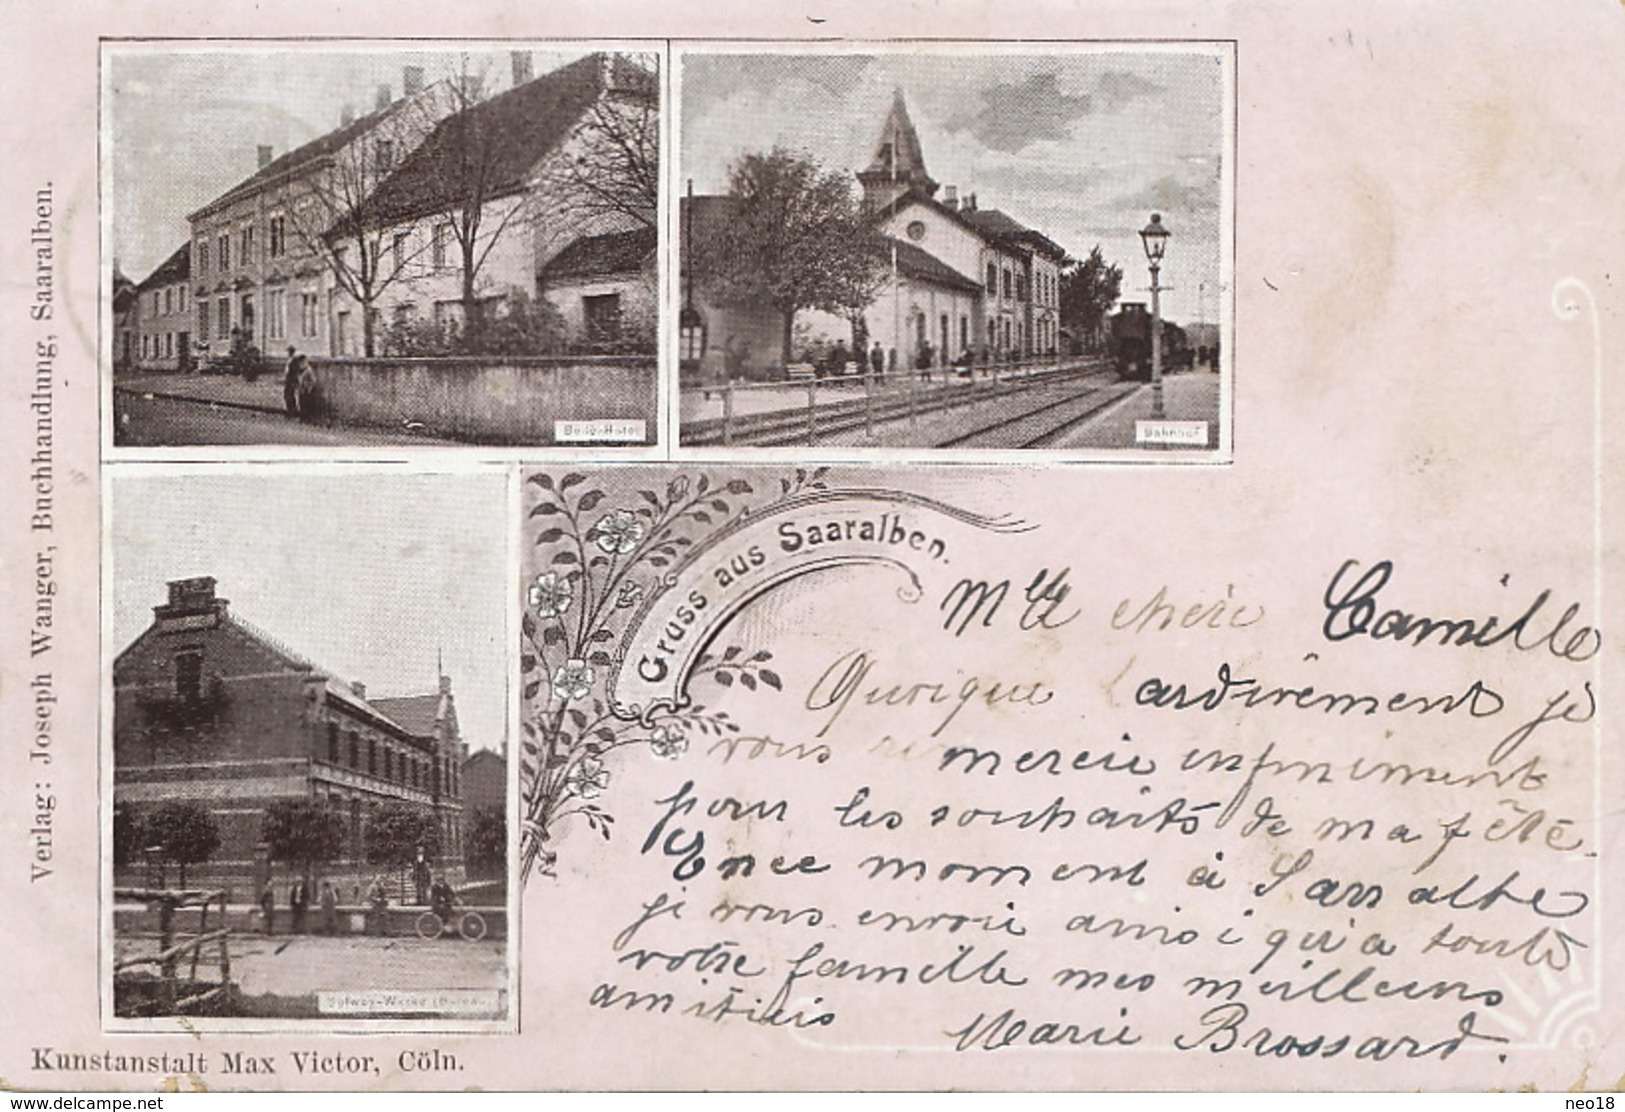 Verlag: Joseph Wanger, Buchhandlung, Saaralben.
Bahnhof
Solvay-Werke (Bureau)
Gruss aus Saaralben.
Mlle chère Camille
Quoique tardivement je
vous remercie infiniment
pour les souhaits de ma fête.
En ce moment à Sarralbe
je vous envoie ainsi qu'à toute
votre famille mes meilleurs
amitiés Marie Brossard.
Kunstanstalt Max Victor, Cöln.
www.delcampe.net
neo18